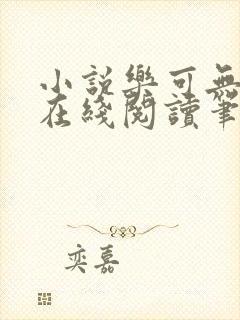 小説樂可無
在綫閱讀筆
奕嘉